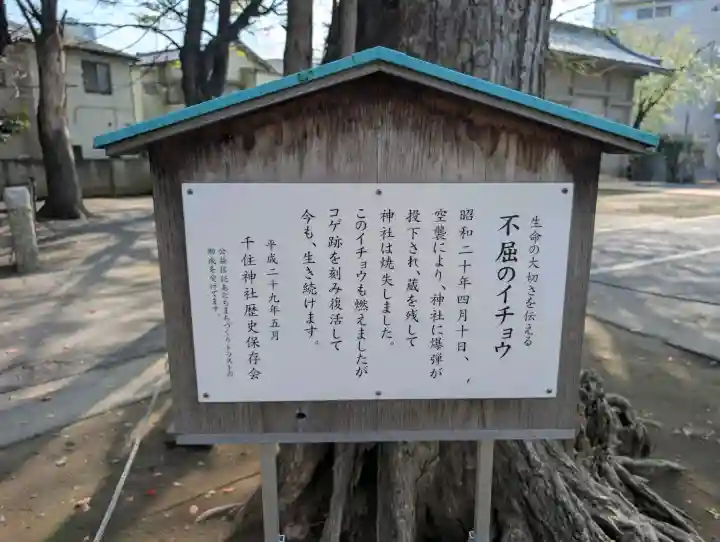 生命の大切さを伝える
不屈のイチョウ
昭和二十年四月十日、
空襲により、神社に爆弾が
投下され、蔵を残して
神社は焼失しました。
このイチョウも燃えましたが
コゲ跡を刻み復活して
今も、生き続けます。
平成二十九年五月
千住神社歴史保存会
公益信託あだちまちづくりトラストの
助成を受けてます。